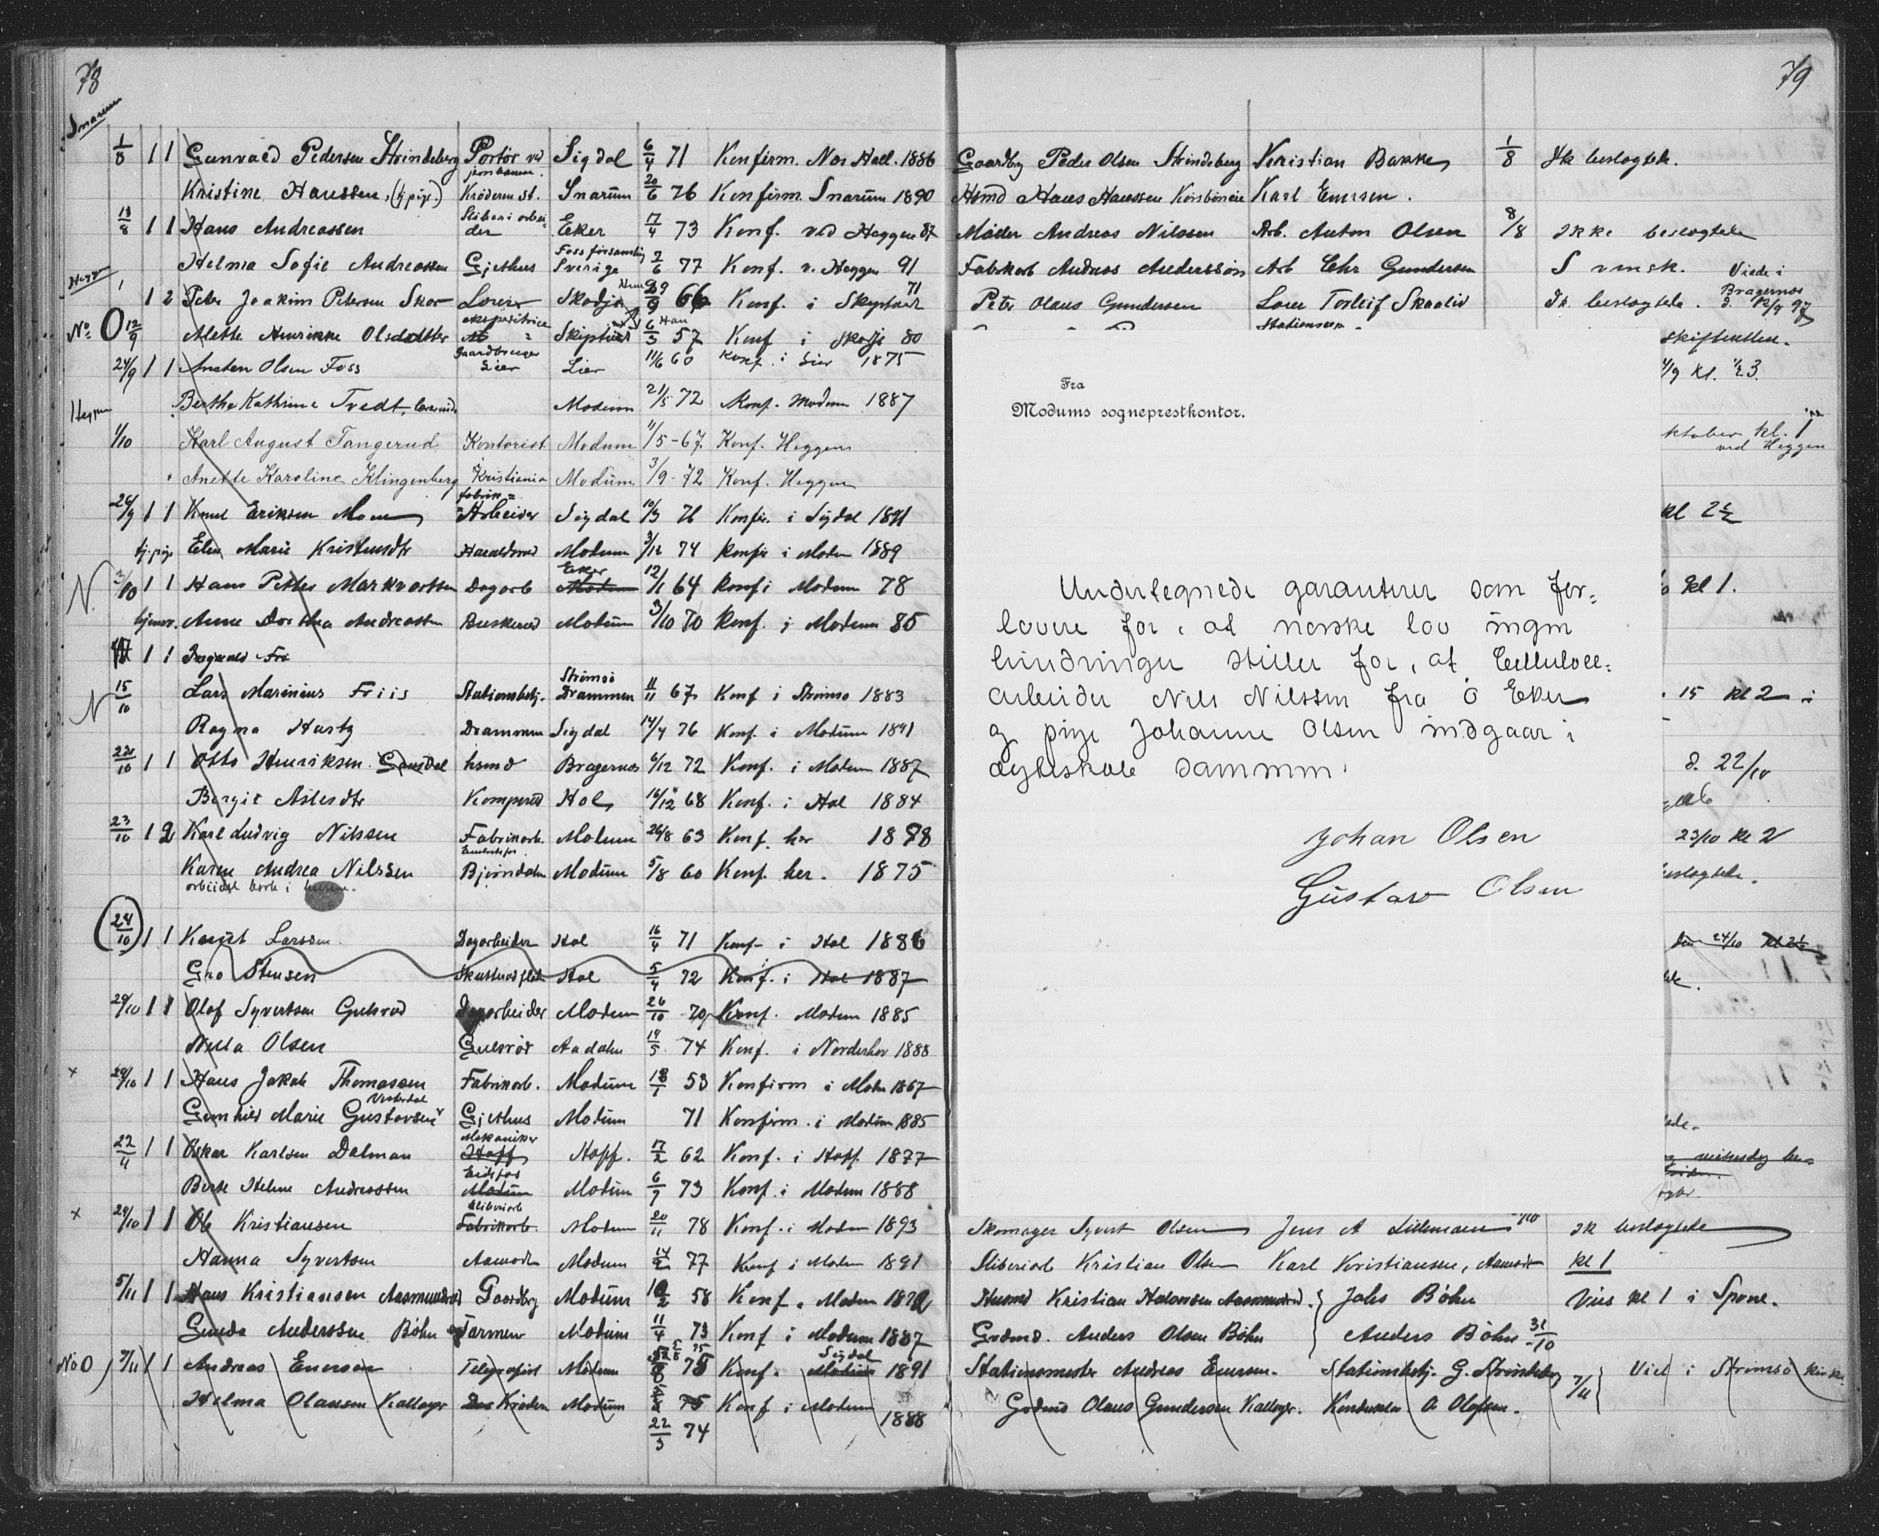 78
Snarum
1/8 1 1 Gunvald Pedersen Strindeberg Portør ved jernbanen. Sigdal 6/4 71 Konfirm. Nes Hall. 1886
Kristine Hanssen, (tj. pige) Krøderen st. Snarum 20/6 76 Konfirm. Snarum 1890
13/8 1 1 Hans Andreassen Sliberiarbeider Eker 17/4 73 Konf. ved Heggen 87
Helma Sofie Andreassen Gjethus Fossforsamling Sverige 2/6 77 Konf. v. Heggen 91
Heggen 1 2 Peter Joakim Petersen Skor Skodje 66 Konf. i Skiptvedt 71
No. 0 12/9 Mette Henrikke Olsdatter Skiptvedt 6/3 57 Konf i Skodje 80
24/9 1 1 Ansten Olsen Foss Gaardbruger Lier Lier 11/6 60 Konf. i Lier 1875
Heggen Berthe Kathrine Tvedt, Modum 21/5 72 Konf. Modum 1887
1/10 Karl August Tangerud Kontorist Modum 11/5-67. Konf. Heggen
Anette Karoline Klingenberg Kristiania Modum 3/9-72 Konf. Heggen
26/9 1 1 Knut Eriksen Moen fabrik= Arbeider Sigdal 10/3 76 Konfir. i Sigdal 1891
tj.pige Elen Marie Kristensdtr Haraldsrud Modum 3/12 74 Konfir i Modum 1889
N. 2/10 1 1 Hans Petter Markvartsen Dagarb Eker Modum 12/1 64 Konf i Modum 78
Anne Dorthea Andreassen Buskerud Modum 3/10 70 Konf. i Modum 85
1 1 Fri
N 15/10 Lars Marinius Friis Stationsbetj. Strømsø Drammen 11/11 67 Konf i Strømsø 1883
Ragna Hurtz Drammen Sigdal 14/4 76 Konf i Modum 1891
22/10 1 1 Otto Henriksen hsmd Bragernes 6/12 72 Konf. i Modum 1887
Bergit Aslesdtr Komperud Hol 16/12 68 Konf. i Hol 1884
23/10 1 2 Karl Ludvig Nilssen Fabrikarb. Modum 26/8 63 Konf. her 1888
Karen Andrea Nilssen Bjørndalen Modum 5/8 60 Konf. her. 1875
24/10 1 1 Knut Larssen Dagarbeider Hol 16/4 71 Konf. i Hol 1886
Gro Stensen Skutterudflata Hol 5/4 72 Konf. i Hol 1887
29/10 1 1 Olaf Syvertsen Gulsrud Dagarbeider Modum 26/10 70 Konf. Modum 1885
Olsen Gulsrød Aadalen 14/5 74 Konf. i Norderhov 1888
x 29/10 1 1 Hans Jakob Thomassen Fabrikarb. Modum 18/1 53 Konfirm i Modum 1867
Gunhild Marie Gustavsen Gjethus Modum 71 Konfirm. i Modum 1885
22/4 1 1 Oskar Karlsen Dalman Mekaniker Hoff Hoff. 17/2 62 Konf. i Hoff 1877
Berte Helene Andreassen Eidsfos Modum Modum 6/7 73 Konf. i Modum 1888
x 29/10 1 1 Ole Kristiansen Sliberiarb Fabrikarb. Modum 20/11 78 Konf. i Modum 1893
Hanna Syvertsen Aamodt Modum 14/2 77 Konf i Modum 1891
5/11 1 1 Hans Kristiansen Aasmundrud Gaardbg Modum 58 Konf. Modum 1872
Gunda Anderssen Bøhn Tarmen Modum 11/4 73 Konf i Modum 1887
No 0 7/11 1 1 Andreas Enersen Telegrafist Modum 75 Konf. Modum Sigdal 1891
Helma Olaussen Kallager Krøderen Modum 75 Konf i Modum 1888
22/3 74
79
Gaardbg Peder Olsen Strindeberg Kristian Bakke 1/8 Ik beslegtet.
Hsmd Hans Hanssen Korsbøneie Karl Enersen.
Møller Andreas Nilssen Arb. Anton Olsen 8/8 Ikke beslegtede
Fabrikarb Andreas Anderssøn Arb Chr Gundersen Svensk.
Peter Olaus Gundersen Torleif Skaalid Ik. beslegtede. Viede i Bragernes d. 12/9 97
skiftattest.
kl. 1/2 3.
Fra
Modums sogneprestkontor.
ktober kl. 1
ved Heggen
kl 2 1/2
Undertegnede garanterer som for=
kl 1.
lovere for, at norske lov ingen
hindringer stiller for, at Cellulose=
arbeider Nils Nilssen fra Ø Eker
15 kl 2 i
og pige Johanne Olsen indgaar i
ægteskab sammen.
d. 22/10
Johan Olsen
23/10 kl 2
Gustav Olsen
beslegtede.
den 24/10
Skomager Syvert Olsen Jens A Lillemoen Ik beslegtede
Sliberiarb Kristian Olsen Karl Kristiansen, Aamodt kl 1
Husmd Kristian Halvorsen Aasmundrud. Johs Bøhn Vies kl 1 i Spone.
Grdmd. Anders Olsen Bøhn Anders Bøhn 31/10
Stationsmester Andreas Enersen. Stationsbetj. G. Strindeberg 7/11 Viet i Strømsø kirke.
Grdmd Olaus Gundersen Kallager. Konduktør O Olafsen.